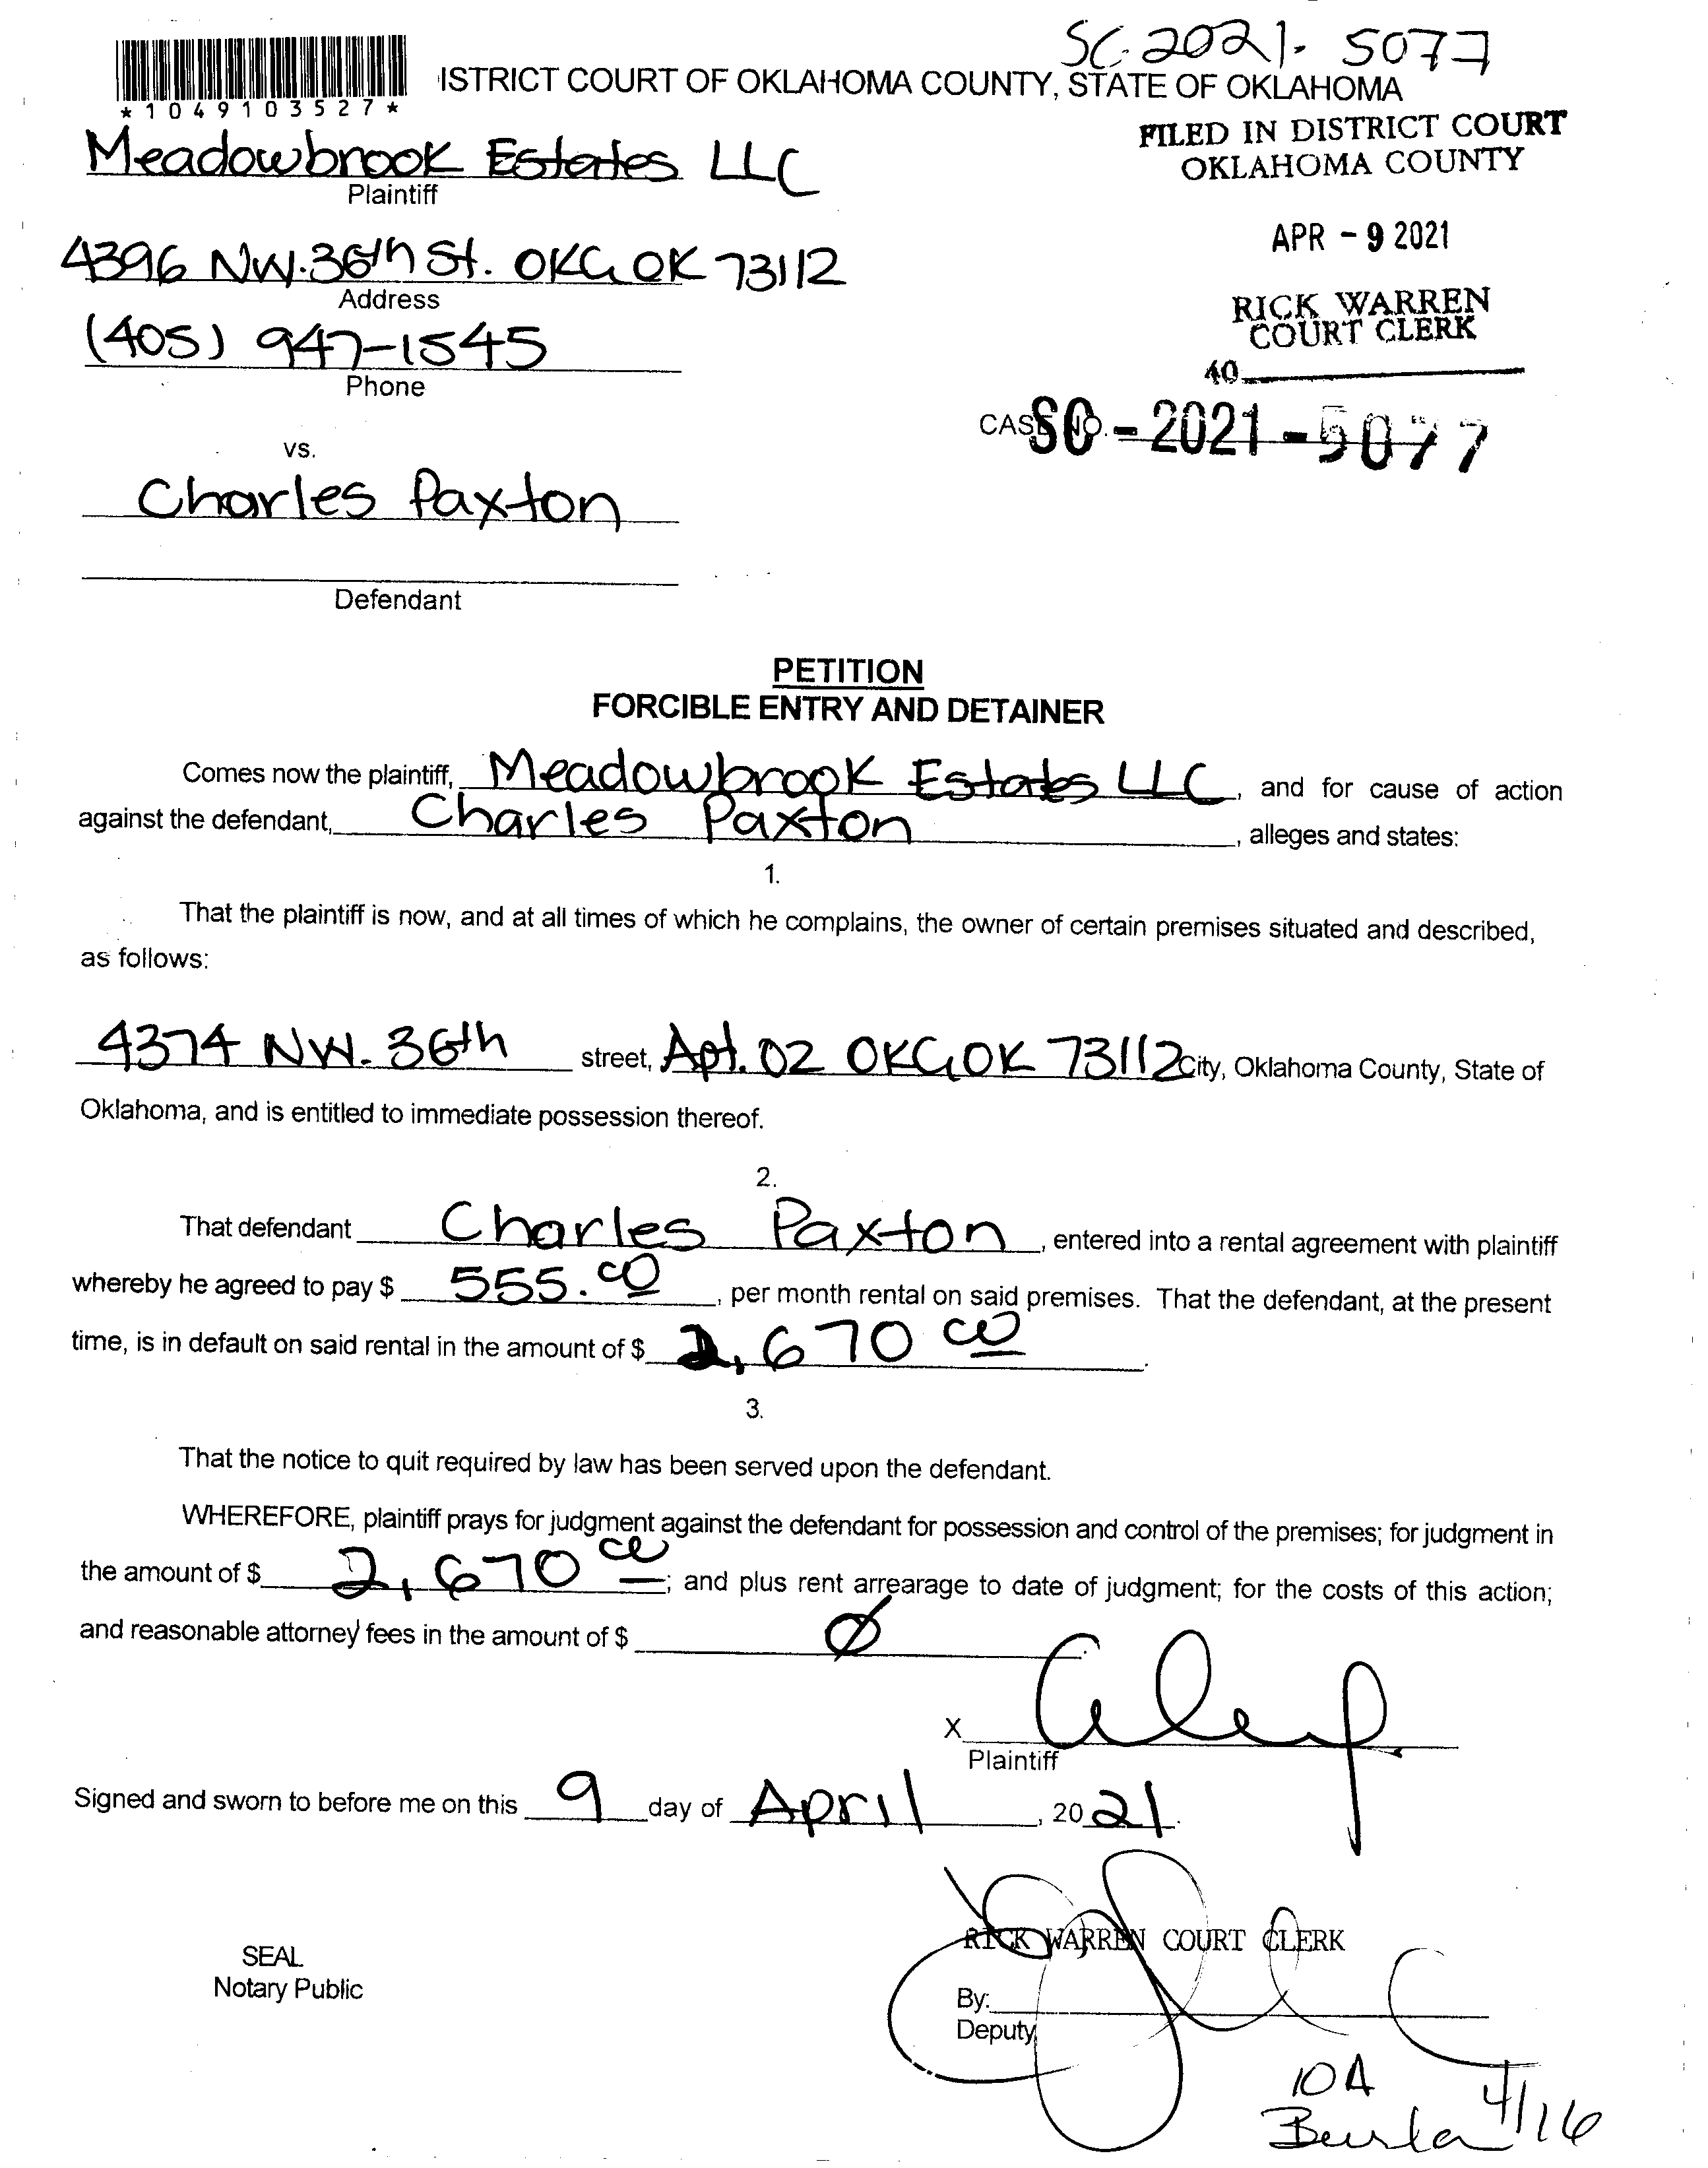 SC-2021-5077
*1049103527*
ISTRICT COURT OF OKLAHOMA COUNTY, STATE OF OKLAHOMA
FILED IN DISTRICT COURT
OKLAHOMA COUNTY
Meadowbrook Estates LLC
Plaintiff
APR - 9 2021
4396 NW. 36th St. OKC, OK 73112
Address
RICK WARREN
COURT CLERK
(405) 947-1545
Phone
40
CASE NO. SC - 2021 - 5077
vs.
Charles Paxton
Defendant
PETITION
FORCIBLE ENTRY AND DETAINER
Comes now the plaintiff, Meadowbrook Estates LLC, and for cause of action
against the defendant, Charles Paxton, alleges and states:
1.
That the plaintiff is now, and at all times of which he complains, the owner of certain premises situated and described,
as follows:
4374 NW. 36th street, Apt. 02 OKC, OK 73112 City, Oklahoma County, State of
Oklahoma, and is entitled to immediate possession thereof.
2.
That defendant Charles Paxton, entered into a rental agreement with plaintiff
whereby he agreed to pay $ 555.00, per month rental on said premises. That the defendant, at the present
time, is in default on said rental in the amount of $ 2,670 00.
3.
That the notice to quit required by law has been served upon the defendant.
WHEREFORE, plaintiff prays for judgment against the defendant for possession and control of the premises; for judgment in
the amount of $ 2,670 00; and plus rent arrearage to date of judgment; for the costs of this action;
and reasonable attorney fees in the amount of $ Ø.
X
Plaintiff
Signed and sworn to before me on this 9 day of April, 2021.
RICK WARREN COURT CLERK
SEAL
Notary Public
By:
Deputy
10A
4/16